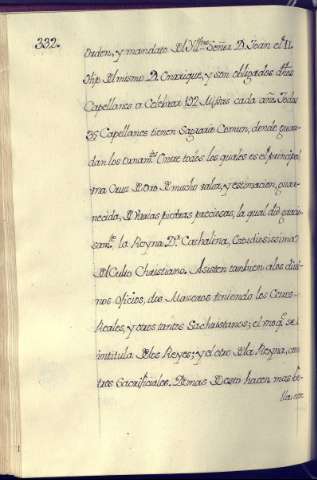 332.
orden, y mandato del Yll.mo Señor D. Joan el II.
hijo del mismo D. Enrrique, y son obligados dhos
Capellanes a Celebrar 192 Missas cada año. Todos
35 Capellanes tienen Sagrario Comun, donde guar-
dan los ornam.tos Entre todos los quales es el principal
una Cruz de Oro de mucho valor, y estimacion, guar-
necida, de varias piedras preciosas, la qual dió gracio-
sam.te la Reyna D.a Cathalina, Cobdiosissima
del Culto Christiano. Asisten tambien a los divi-
nos Oficios, dos Maseros teniendo los Cetros
Reales, y otros tantos Sachristanos; el uno q.e se
intitula de los Reyes; y el otro de la Reyna, con
tres Sacrificiales. Demas de esto hacen mas be-
lla, este